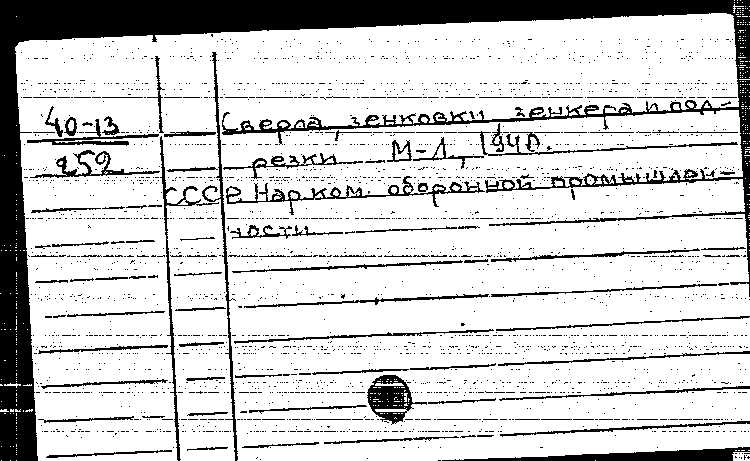 40-13
252
Сверла, зенковки, зенкера и под-
резки М-Л, 1940.
СССР. Нар.ком. оборонной промышлен-
ности